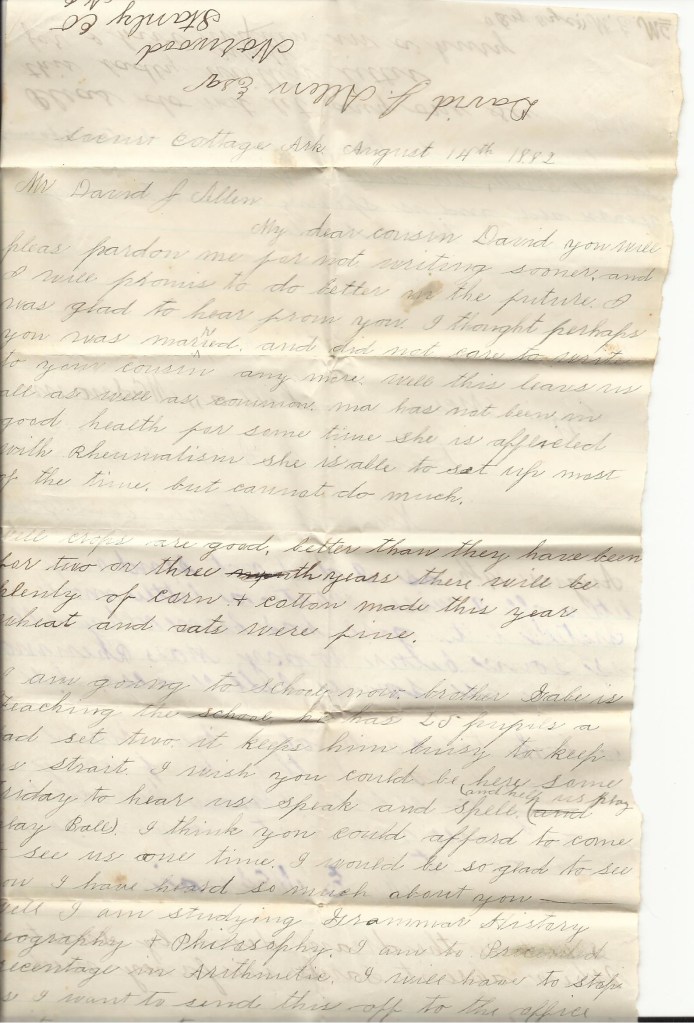 David J. Allen Esq
Norwood
Stanly Co
Cottage Ark, August 14th 1882
Mr David J Allen
My dear cousin David you will
pleas pardon me for not writing sooner, and
I will promis to do better in the future. I
was glad to hear from you. I thought perhaps
you was married. and did not care to write
to your cousin any more. well this leaves us
all as well as common. ma has not been in
good health for some time she is
with Rheumatism she is able to set up most
of the time. but cannot do much.
Well crops are good, better than they have been
for two or three years there will be
plenty of corn & cotton made this year
wheat and oats were fine.
I am going to school now. brother Gabe is
teaching the school he has 25 pupils a
ad set two. it keeps him buisy to keep
us strait. I wish you could be here some
Friday to hear us speak and spell. (and help us play
(and
play Ball). I think you could afford to come
see us one time. I would be so glad to see
you I have heard so much about you —
well I am studying Grammar History
eography & Philosophy. I am to
ercentage in Arithmetic. I will have to stop
as I want to send this off to the office